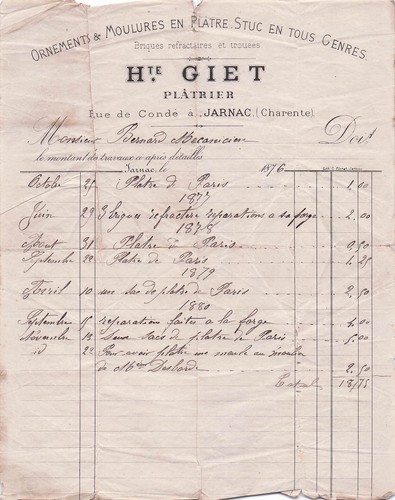 ORNEMENTS & MOULURES EN PLATRE. STUC EN TOUS GENRES.
Briques réfractaires et trouées
Hte GIET
PLÂTRIER
Rue de Condé à JARNAC, (Charente)
Monsieur Bernard Mecanicien Doit
le montant de travaux ci-après détaillés
Jarnac, le 1876
Octobre 25 Platre de Paris 1,00
1877
Juin 29 3 briques refractere reparations a la forge 2,00
1878
Aout 31 Platre de Paris 0,50
Septembre 22 Platre de Paris 1,25
1879
Avril 10 un sac de platre de Paris 2,50
1880
Septembre 15 reparation faites a la forge 4,00
Novembre 13 Deux sacs de platre de Paris 5,00
id 22 Pour avoir platré une meule au moulin
de Desborde 2,50
Total 18,75